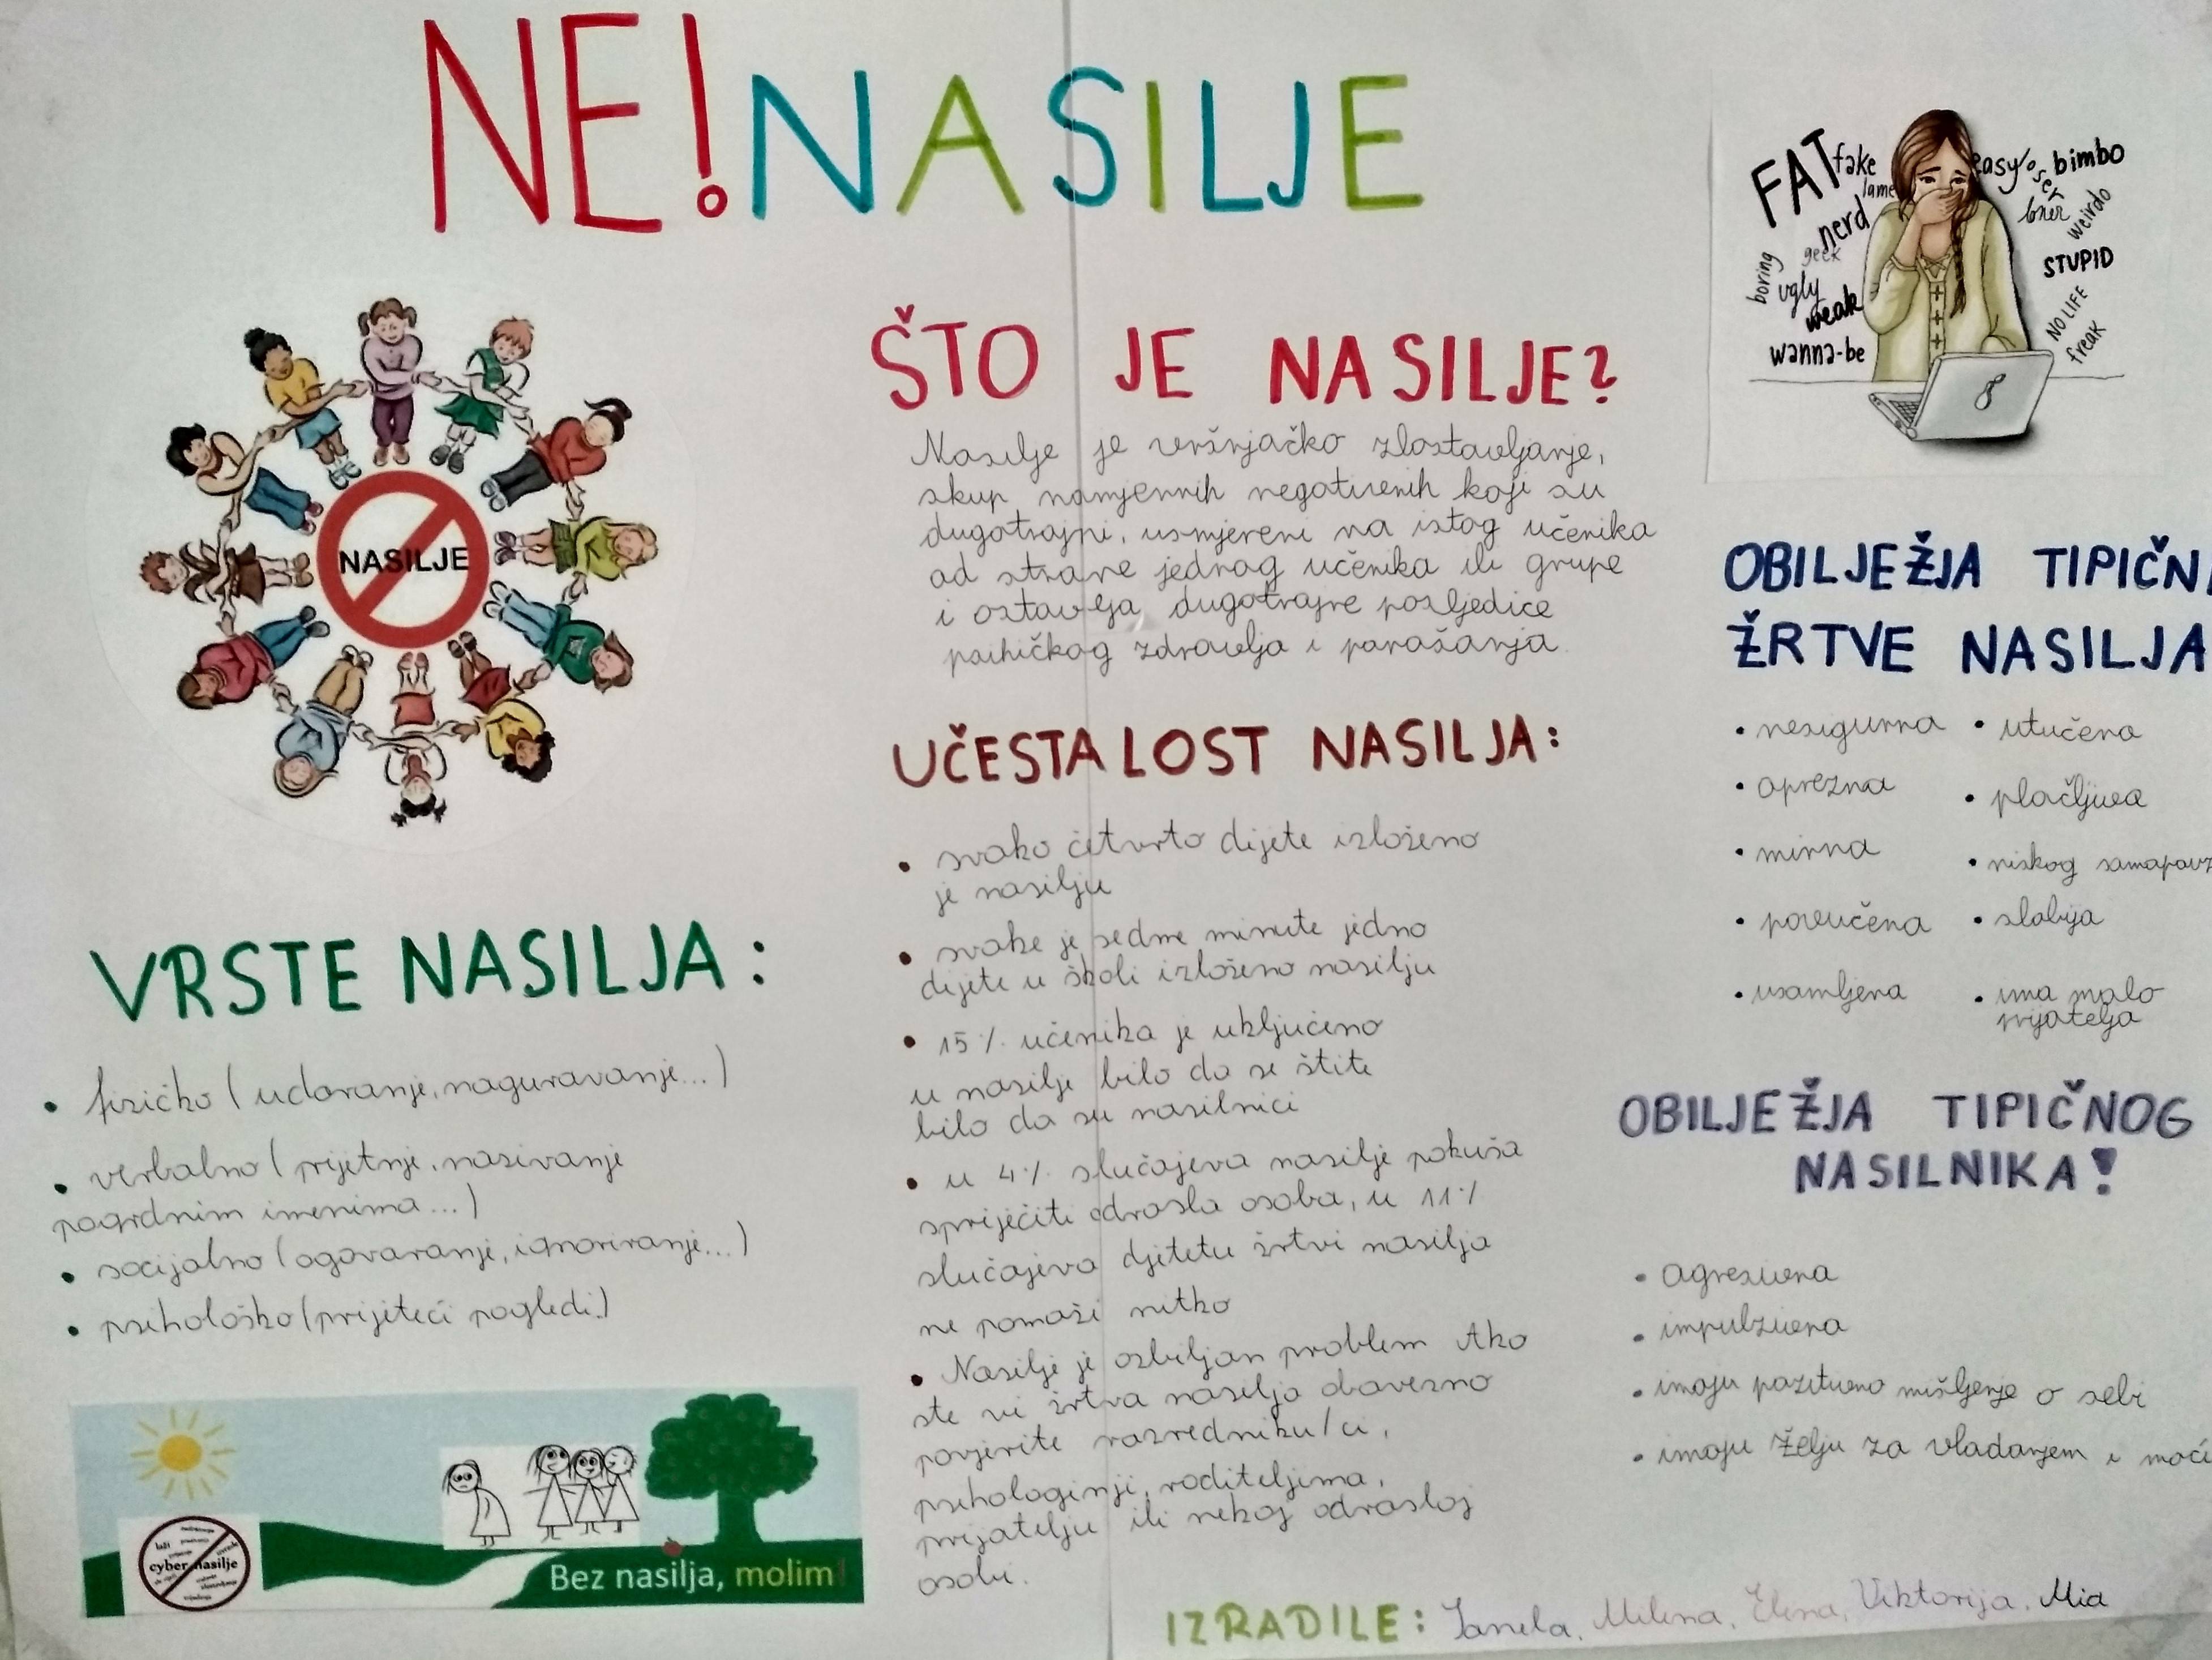 NE! NASILJE
NASILJE
VRSTE NASILJA:
• fizičko (udaranje, naguravanje...)
• verbalno (prijetnje, nazivanje
pogrdnim imenima...)
• socijalno (ogovaranje, ignoriranje...)
• psihološko (prijeteći pogledi.)
laži
cyber nasilje
Bez nasilja, molim!
ŠTO JE NASILJE?
Nasilje je vršnjačko zlostavljanje,
skup namjernih negativnih koji su
dugotrajni, usmjereni na istog učenika
od strane jednog učenika ili grupe
i ostavlja dugotrajne posljedice
psihičkog zdravlja i
UČESTALOST NASILJA:
• svako četvrto dijete izloženo
je nasilju
• svake je sedme minute jedno
dijete u školi izloženo nasilju
• 15% učenika je uključeno
u nasilje bilo da se štite
bilo da su nasilnici
• u 4% slučajeva nasilje pokuša
spriječiti odrasla osoba, u 11%
slučajeva djetetu žrtvi nasilja
ne pomaže nitko
• Nasilje je ozbiljan problem Ako
ste vi žrtva nasilja obavezno
povjerite razredniku/ci,
psihologinji, roditeljima,
prijatelju ili nekoj odrasloj
osobi.
FAT
fake
lame
nerd
geek
boring
ugly
weak
wanna-be
easy
loser
bimbo
loner
weirdo
STUPID
NO LIFE
freak
OBILJEŽJA TIPIČN
ŽRTVE NASILJA
• nesigurna • utučena
• oprezna • plačljiva
• mirna • niskog
• povučena • slabija
• usamljena • ima malo
prijatelja
OBILJEŽJA TIPIČNOG
NASILNIKA!
• agresivna
• impulzivna
• imaju pozitivno mišljenje o sebi
• imaju želju za vladanjem i moći
IZRADILE: Milena, Elena, Viktorija, Mia